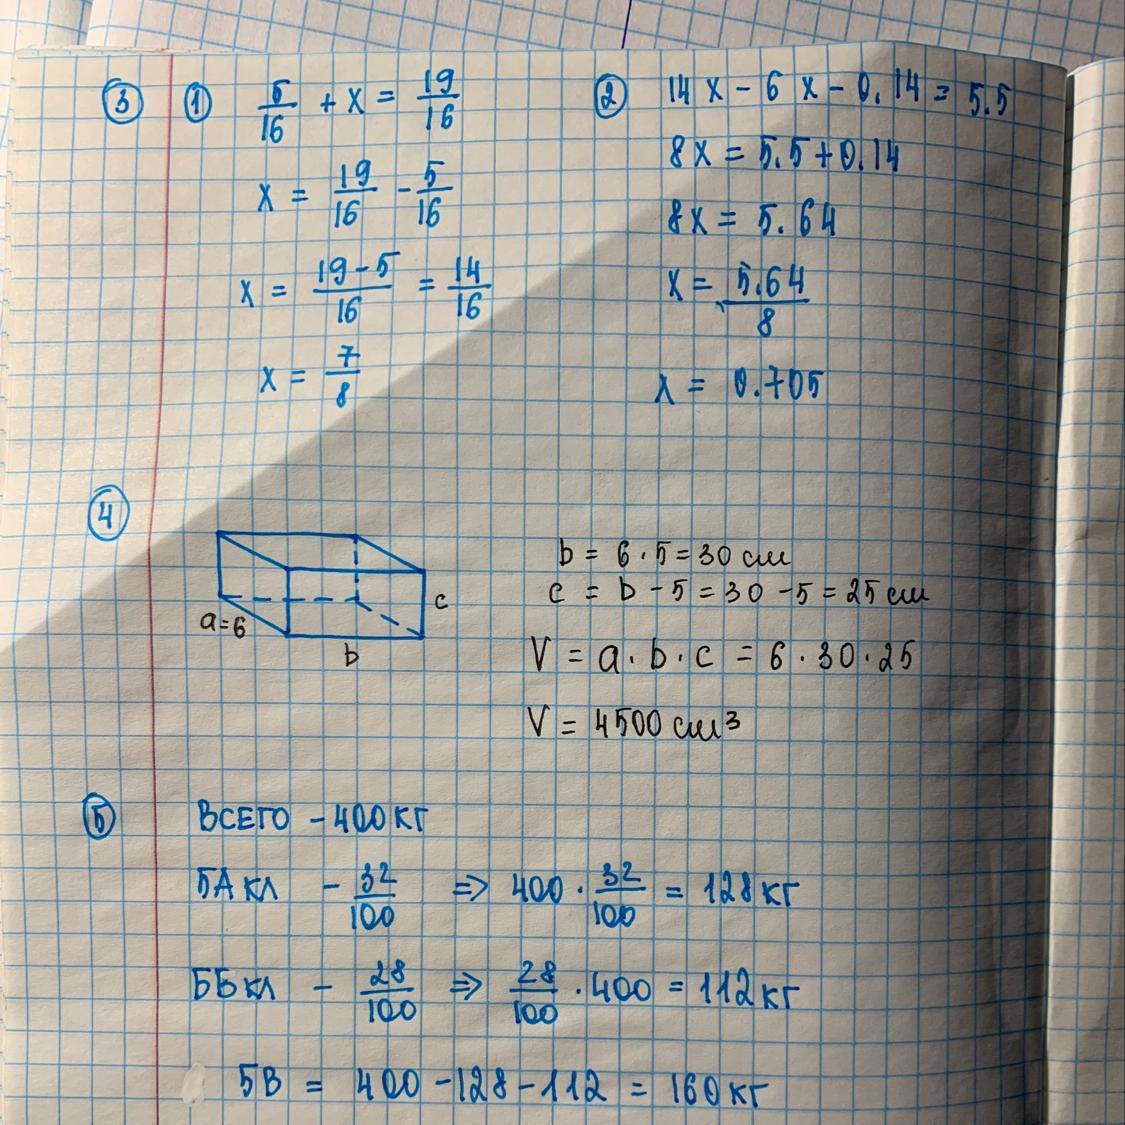 ③ ① 5/16 + x = 19/16
x = 19/16 - 5/16
x = 19-5/16 = 14/16
x = 7/8
② 14x - 6x - 0.14 = 5.5
8x = 5.5 + 0.14
8x = 5.64
x = 5.64/8
x = 0.705
④
a=6
b
c
b = 6 · 5 = 30 см
c = b - 5 = 30 - 5 = 25 см
V = a · b · c = 6 · 30 · 25
V = 4500 см³
⑤ ВСЕГО - 400 КГ
5А кл - 32/100 => 400 · 32/100 = 128 кг
5Б кл - 28/100 => 28/100 · 400 = 112 кг
5В = 400 - 128 - 112 = 160 кг